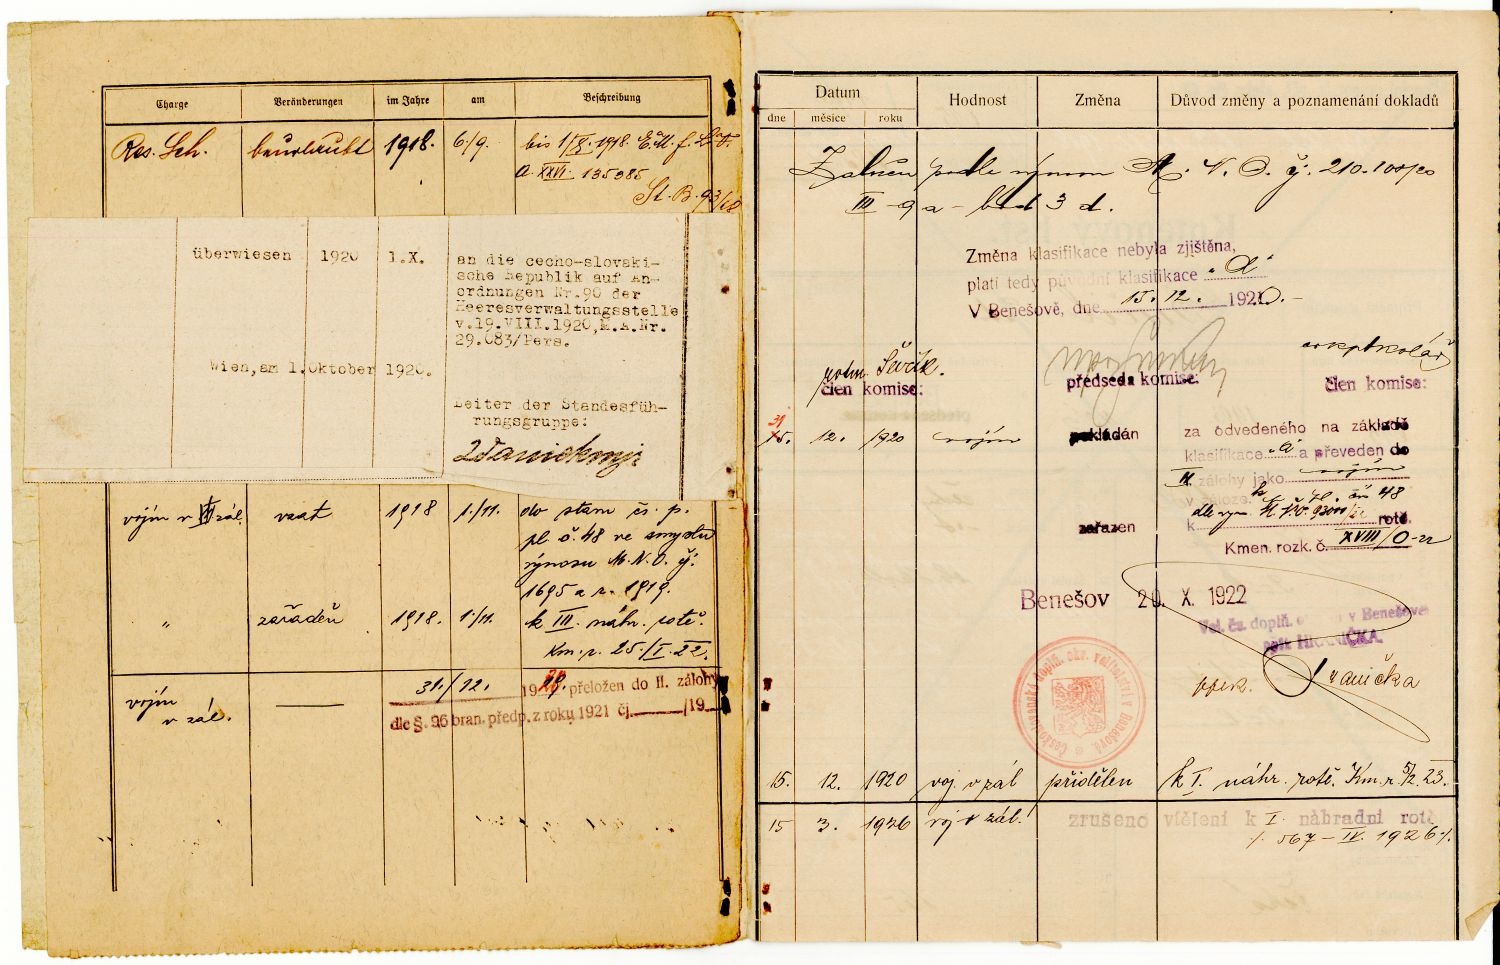 Charge Veränderungen im Jahre am Beschreibung
Res. Sch. beurlaubt 1918. 6/9. bis 1/X. 1918. E.M. f.
a. XXVI. 135985
St. B. 93/18
überwiesen 1920 1.X. an die cecho-slovaki-
sche Republik auf An-
ordnungen Nr.90 der
Heeresverwaltungsstelle
v.19.VIII.1920, M.A.Nr.
29.083/Pers.
Wien, am 1.Oktober 1920.
Leiter der Standesfüh-
rungsgruppe:
vojín v III zál. vzat 1918 1./11. do stavu čs. p.
pl. č. 48 ve smyslu
výnosu M.N.O. čj.
1695 a r. 1919.
" zařaděn 1918. 1./11. k III. náhr. rotě.
Km. r. 25./I. 22.
vojín
v zál. — 31./12. 19 přeložen do II. zálohy
dle §. 96 bran. předp. z roku 1921 čj. /19
Datum Hodnost Změna Důvod změny a poznamenání dokladů
dne měsíce roku
podle výnosu M. N. O. čj. 210.100/20
III - 9 a - bod 3 d.
Změna klasifikace nebyla zjištěna,
platí tedy původní klasifikace "A"
V Benešově, dne 15. 12. 1920. -
člen komise: předseda komise: člen komise:
31
15. 12. 1920 vojín pokládán za odvedeného na základě
klasifikace "A" a převeden do
II. zálohy jako vojín
v záloze. k čs. pl. čís 48
dle vyn. M.N.O. 9300/22
zařazen k rotě.
Kmen. rozk. č. XVIII/0-22
Benešov 20. X. 1922
Vel. čs. doplň. v Benešově
špk. HRANIČKA.
Hranička
Československé doplň. okr. velitelství v Benešově
15. 12. 1920 voj. v zál přidělen k I. náhr. rotě. Km. r. 5/2. 23.
15 3. 1926 voj v zál. zrušeno vtělení k I. náhradní rotě
/. 567 - IV. 1926 /.